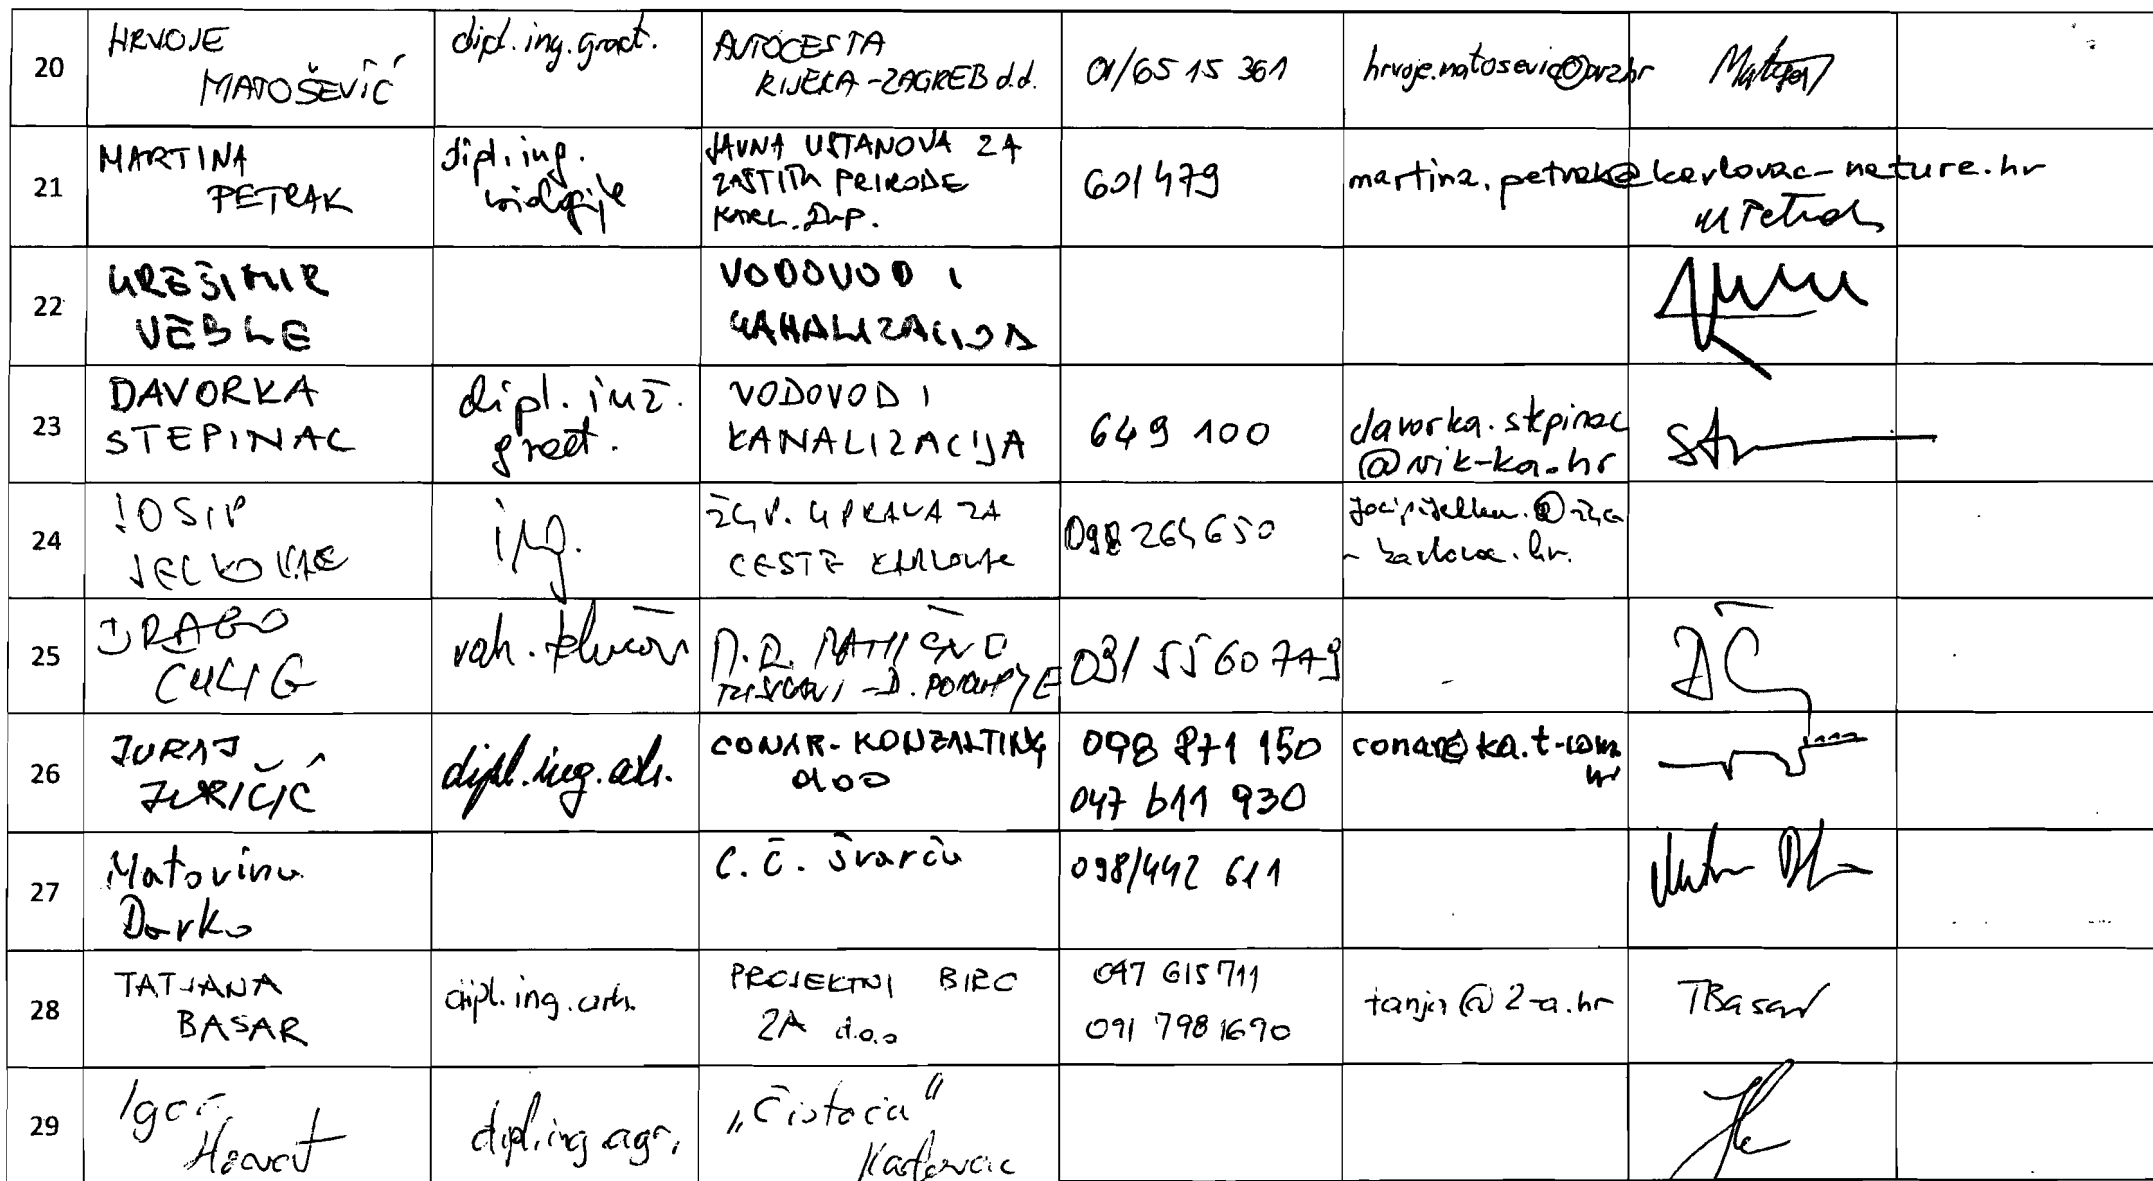 20
HRVOJE
MATOŠEVIĆ
dipl.ing.građ.
AUTOCESTA
RIJEKA-ZAGREB d.d.
01/65 15 361
hrvoje.matosevic@arz.hr
21
MARTINA
PETRAK
dipl.ing.
biologije
JAVNA USTANOVA ZA
ZAŠTITU PRIRODE
KARL. ŽUP.
601479
martina.petrak@karlovac-nature.hr
M Petrak
22
KREŠIMIR
VEBLE
VODOVOD I
KANALIZACIJA
23
DAVORKA
STEPINAC
dipl. inž.
građ.
VODOVOD I
KANALIZACIJA
649 100
davorka.stepinac
@vik-ka.hr
24
JOSIP
JELKOVAC
ing.
ŽUP. UPRAVA ZA
CESTE KARLOVAC
098 264 650
- karlovac.hr.
25
DRAGO
ČULIG
26
JURAJ
JURIČIĆ
dipl.ing.arh.
CONAR-KONZALTING
doo
098 871 150
047 611 930
conar@ka.t-com.
hr
27
Matovina
Darko
C.Č. Švarča
098/442 611
28
TATJANA
BASAR
dipl.ing.arh.
PROJEKTNI BIRO
2A d.o.o
047 615 711
091 798 1690
tanja@2-a.hr
TBasar
29
Igor
Horvat
dipl.ing.agr.
„Čistoća"
Karlovac